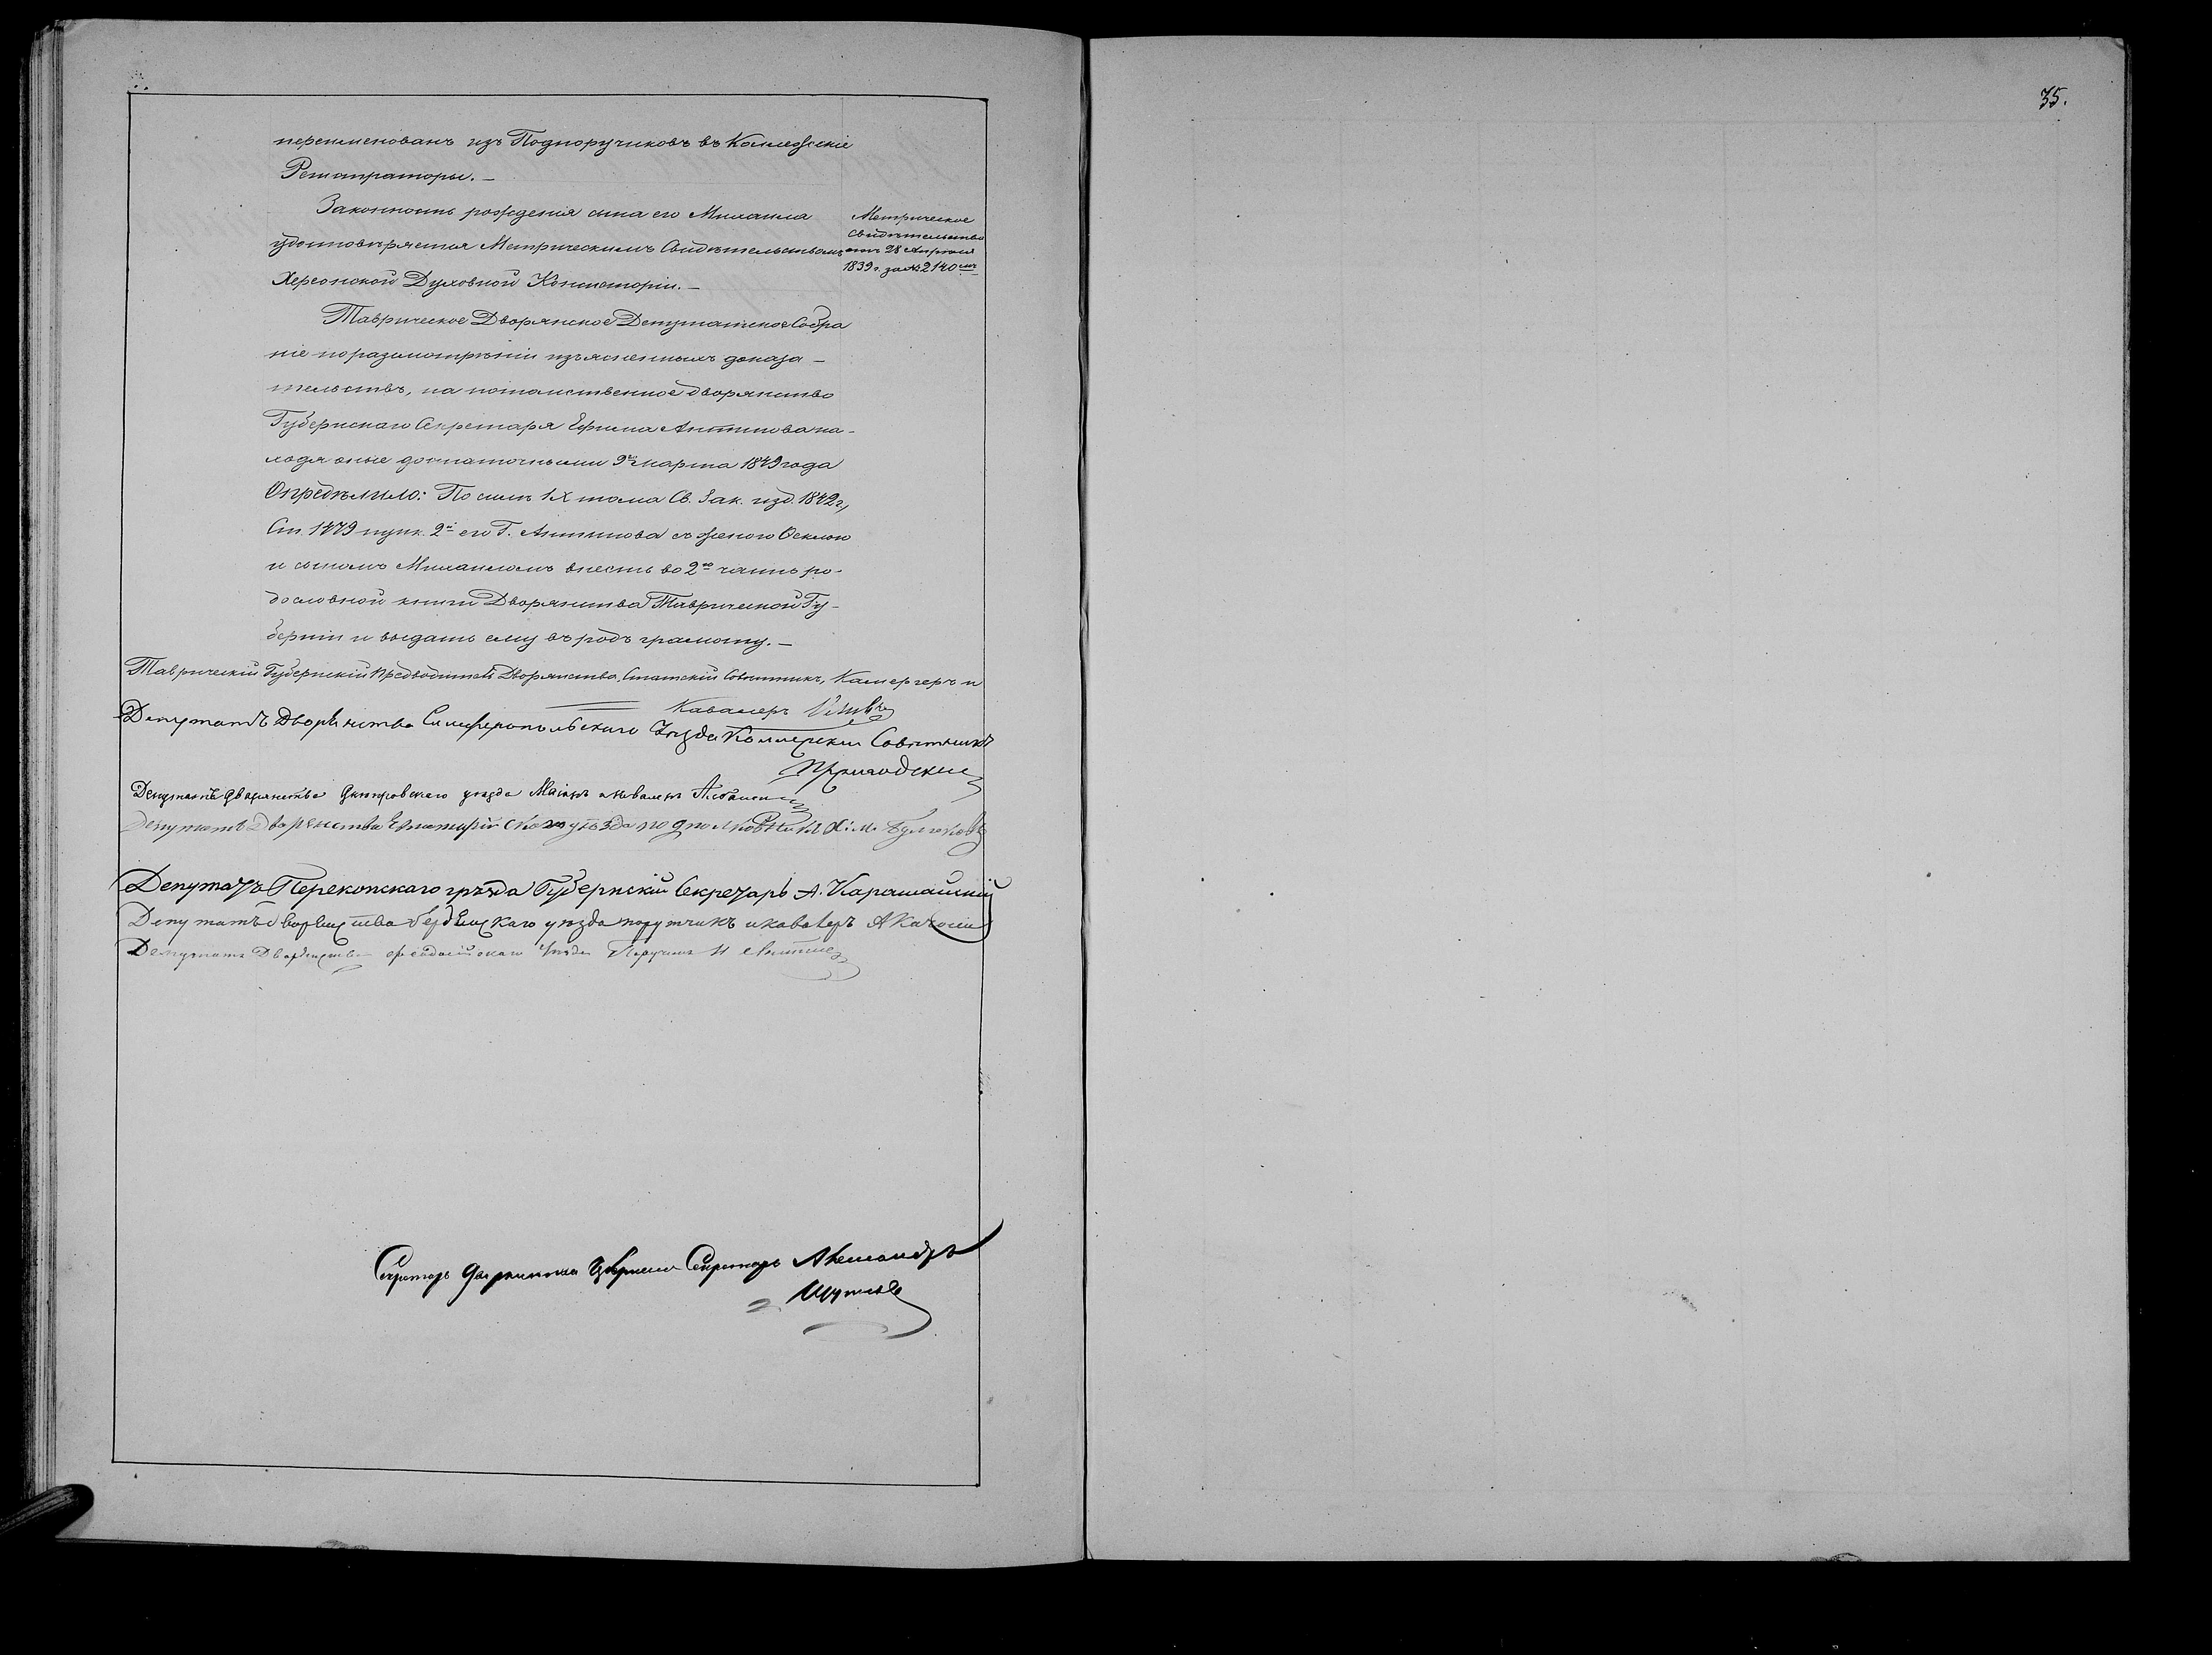 переименованъ изъ Подпоручиковъ въ Коллежскіе
Регистраторы. —
Законность рожденія сына его Михаила
удостовѣряется Метрическимъ Свидѣтельствомъ
Херсонской Духовной Консисторіи. —
Метрическое
свидѣтельство
отъ 28 Апрѣля
1839 г. за № 2140
Таврическое Дворянское Депутатское Собра
ніе по разсмотрѣніи изъясненныхъ доказа —
тельствъ, на потомственное дворянство
Губернскаго Секретаря Ефима Антинова на-
ходя оные достаточными 9 марта 1849 года
Опредѣлило: По силѣ IX тома Св. Зак. изд. 1842 г,
Ст. 1479 пунк. 2 его Г. Антинова съ женою Феклою
и сыномъ Михаиломъ внесть во 2ю часть ро-
дословной книги Дворянства Таврической Гу-
берніи и выдать ему въ родъ грамоту. —
Таврическій Губернскій Предводитель Дворянства, Статскій Совѣтникъ, Камергеръ и
Кавалеръ
Депутатъ Дворянства Симферопольскаго Уѣзда Коллежскій Совѣтникъ
Депутатъ дворянства Днѣпровскаго уѣзда Маіоръ и кавалеръ
Депутатъ Дворянства Евпаторійскаго уѣзда подполковникъ
Депутатъ Перекопскаго уѣзда Губернскій Секретарь А. Карашайскій
Депутатъ дворянства бердянскаго уѣзда поручикъ и кавалеръ
Депутатъ Дворянства Феодосійскаго Уѣзда Поручикъ
Секретарь дворянства Губернскій Секретарь Александръ
35.